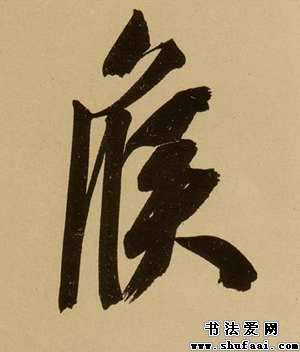 候
书法爱网
www.shufaai.com